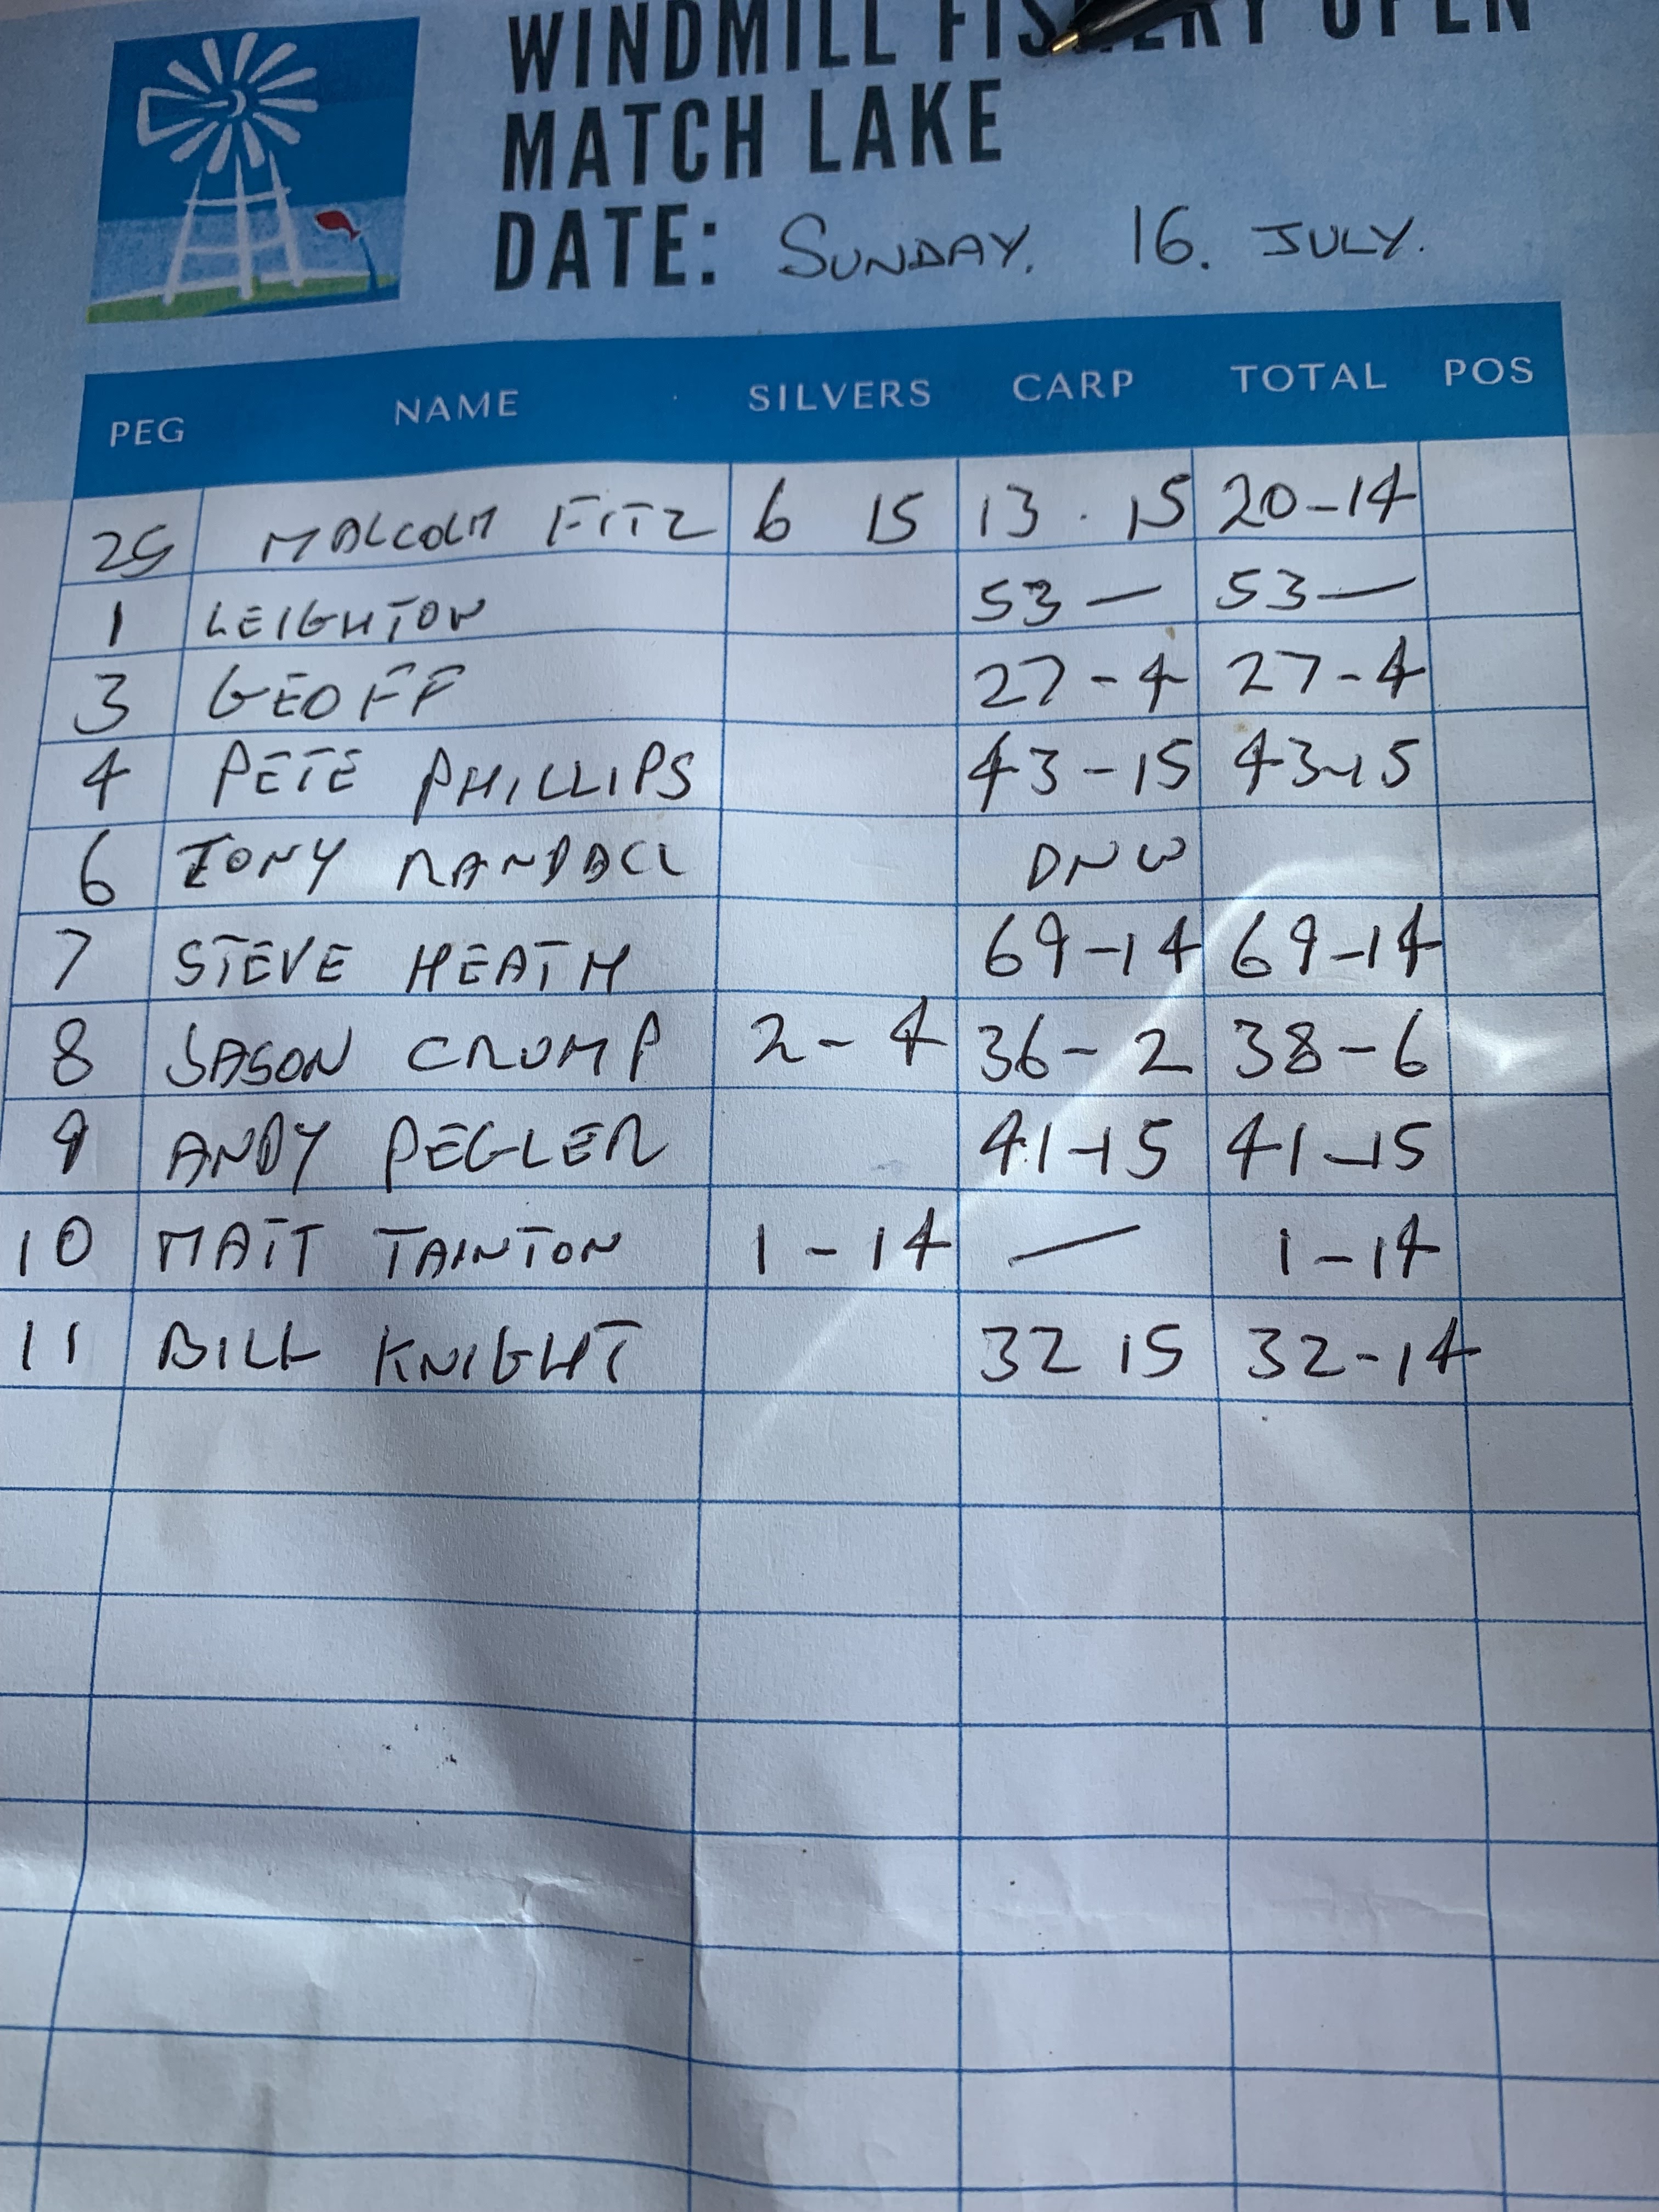 WINDMILL FISHERY OPEN
MATCH LAKE
DATE: SUNDAY. 16. JULY.
PEG NAME SILVERS CARP TOTAL POS
25 MALCOLM FITZ 6 15 13 . 15 20-14
1 LEIGHTON 53 — 53 —
3 GEOFF 27-4 27-4
4 PETE PHILLIPS 43-15 43-15
6 TONY RANDALL DNW
7 STEVE HEATH 69-14 69-14
8 JASON CRUMP 2-4 36-2 38-6
9 ANDY PEGLER 41-15 41-15
10 MATT TAINTON 1-14 — 1-14
11 BILL KNIGHT 32 15 32-14